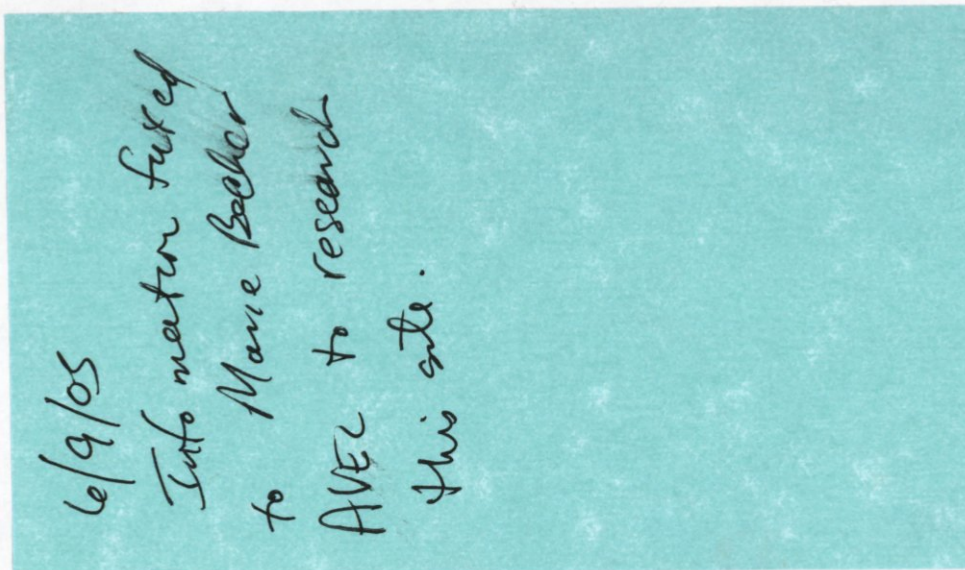 6/9/05
Information faxed
to Marie Becker
AVEC to research
this site.